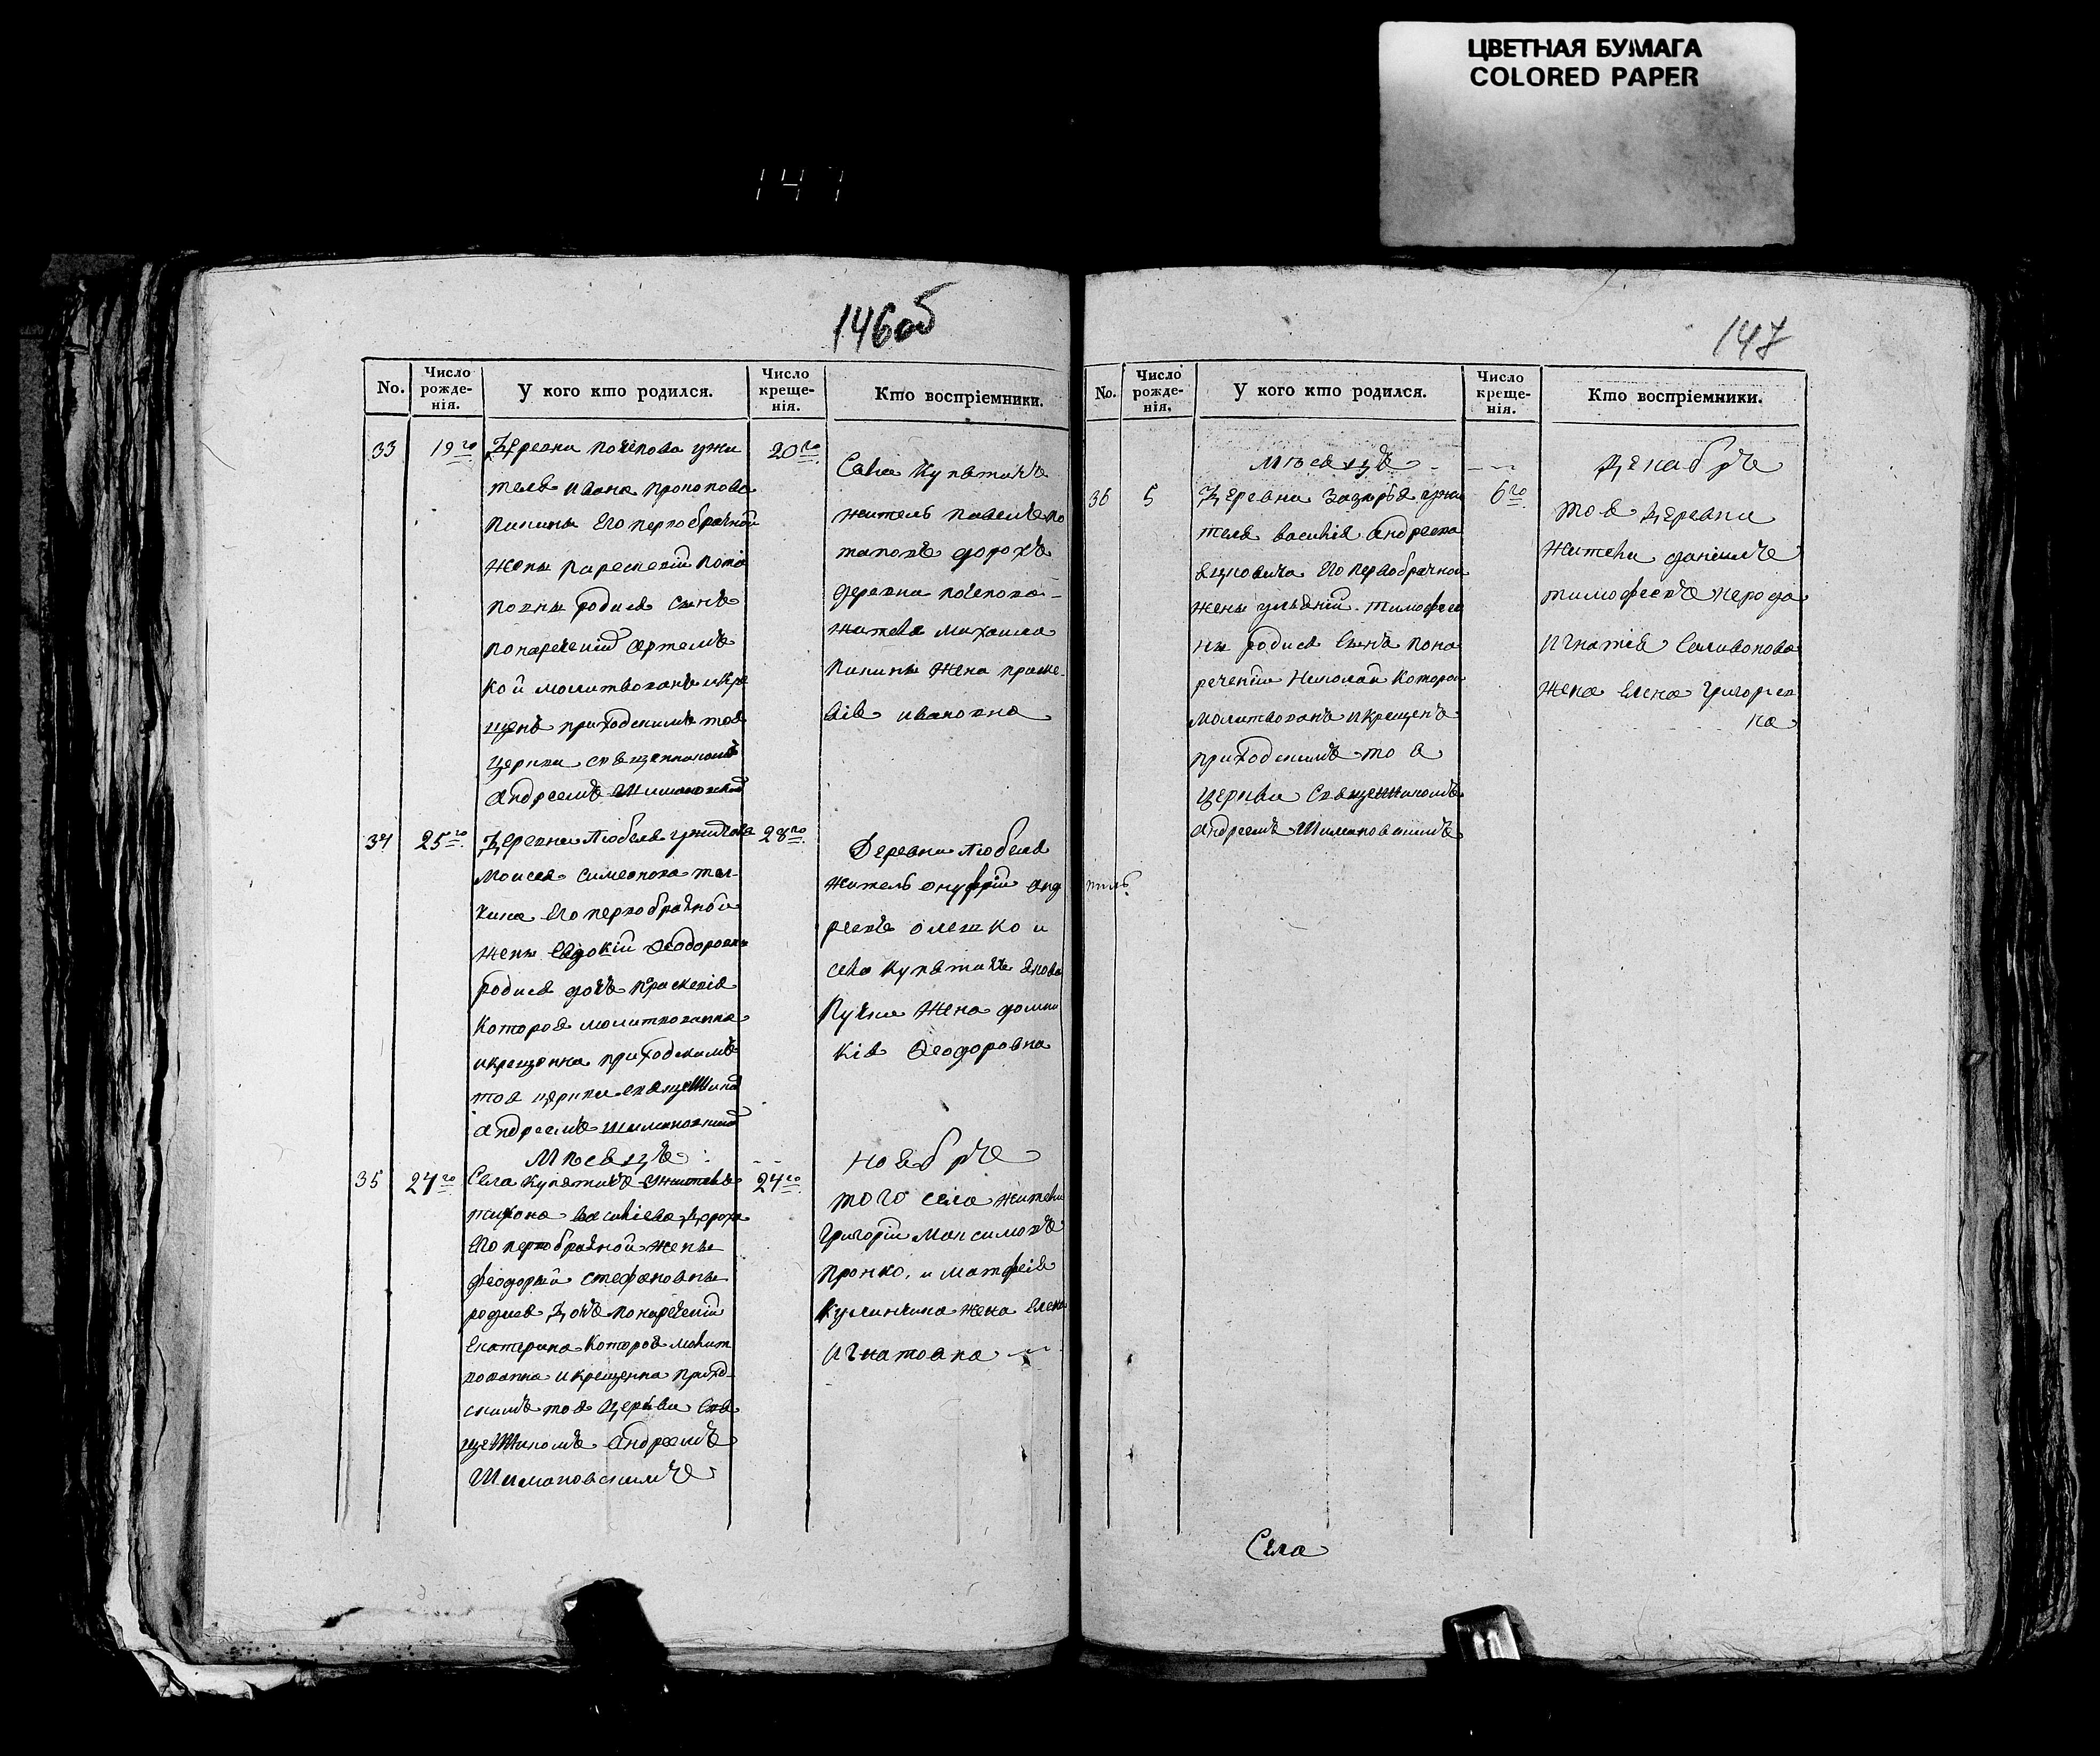 ЦВЕТНАЯ БУМАГА
COLORED PAPER
147
146об
No.
Число рожде-нія.
У кого кто родился.
Число креще-нія.
Кто воспріемники.
33 19го
Деревни почепова ужи
теля ивана прокопова
пипины его первобрачной
жены параскевіи пота
повны родися сынъ
понареченіи артемъ
кой молитвованъ икре
щенъ приходскимъ тоя
церкви священникомъ
андреемъ Шимановский
20го
Села Купятичъ
житель павелъ по
таповъ дорохъ
деревни почепова
жителя михаила
пипины жена праске
вія ивановна
34 25го
Деревни Любель ужителя
Моисея Симеонова
его первобрачной
жены евдокіи Феодоровны
родися дочъ Праскевія
Которой молитвованна
икрещенна приходскимъ
тоя церкви священика
андреемъ шимановский
28го
Деревни Любеля
житель онуфрій анд
реевъ олешко и
села Купятичъ якова
Пучки жена доми
кія Феодоровна
Мѣсяцъ
ноябрь
35 24го
Села Купятичъ ужителя
тихона василіева Дороха
Его первобрачной жены
феодоріи стефановны
родися Дочъ понареченіи
Екатерина Которой молит
вованна и крещенна прихо
скимъ тоя Церкви Свя
щенникомъ андреемъ
Шимановскимъ
24го
того села жители
Григорій Максимовъ
Пронко, и матфея
жена Елена
Игнатовна
147
No.
Число рожде-нія.
У кого кто родился.
Число креще-нія.
Кто воспріемники.
Мѣсяцъ
Декабрь
36 5
Деревни Заларья ужи
теля василія андреева
его первобрачной
жены ульяніи тимофее
ны родися сынъ пона
речении Николай Которой
молитвованъ икрещенъ
приходскимъ то я
церкви Священникомъ
андреемъ Шимановскимъ
6го
тоя деревни
жители даниилъ
тимофеевъ нерода
игнатія Селивонова
жена Елена Григориев
на
тель
Села